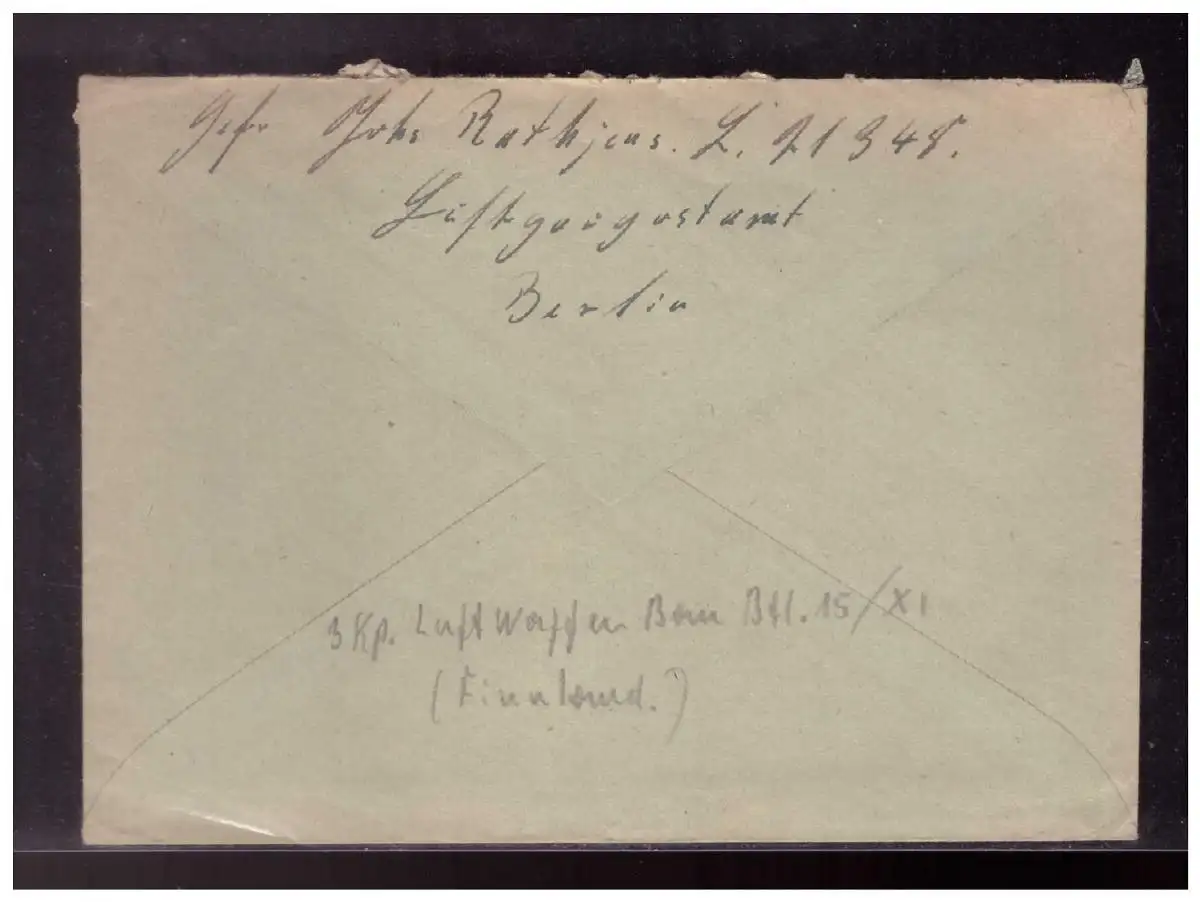 Gefr Johs Rathjens. L. 21348.
Luftgaupostamt
Berlin
3 Kp. Luftwaffen Bau Btl. 15/XI
(Finnland.)